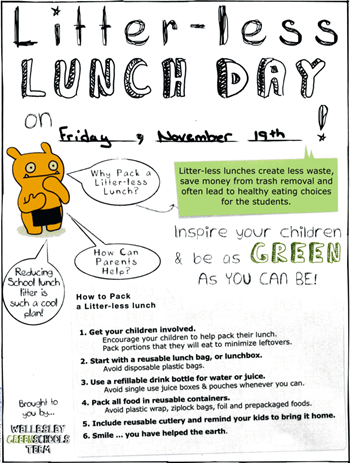 Litter-less
LUNCH DAY
on Friday, November 19th!
Why Pack a
Litter-less
Lunch?
Litter-less lunches create less waste,
save money from trash removal and
often lead to healthy eating choices
for the students.
Inspire your children
& be as GREEN
AS YOU CAN BE!
How Can
Parents
Help?
Reducing
School lunch
litter is
such a cool
plan!
How to Pack
a Litter-less lunch
1. Get your children involved.
Encourage your children to help pack their lunch.
Pack portions that they will eat to minimize leftovers.
2. Start with a reusable lunch bag, or lunchbox.
Avoid disposable plastic bags.
3. Use a refillable drink bottle for water or juice.
Avoid single use juice boxes & pouches whenever you can.
4. Pack all food in reusable containers.
Avoid plastic wrap, ziplock bags, foil and prepackaged foods.
5. Include reusable cutlery and remind your kids to bring it home.
6. Smile ... you have helped the earth.
Brought to
you by...
WELLESLEY
GREEN SCHOOLS
TEAM